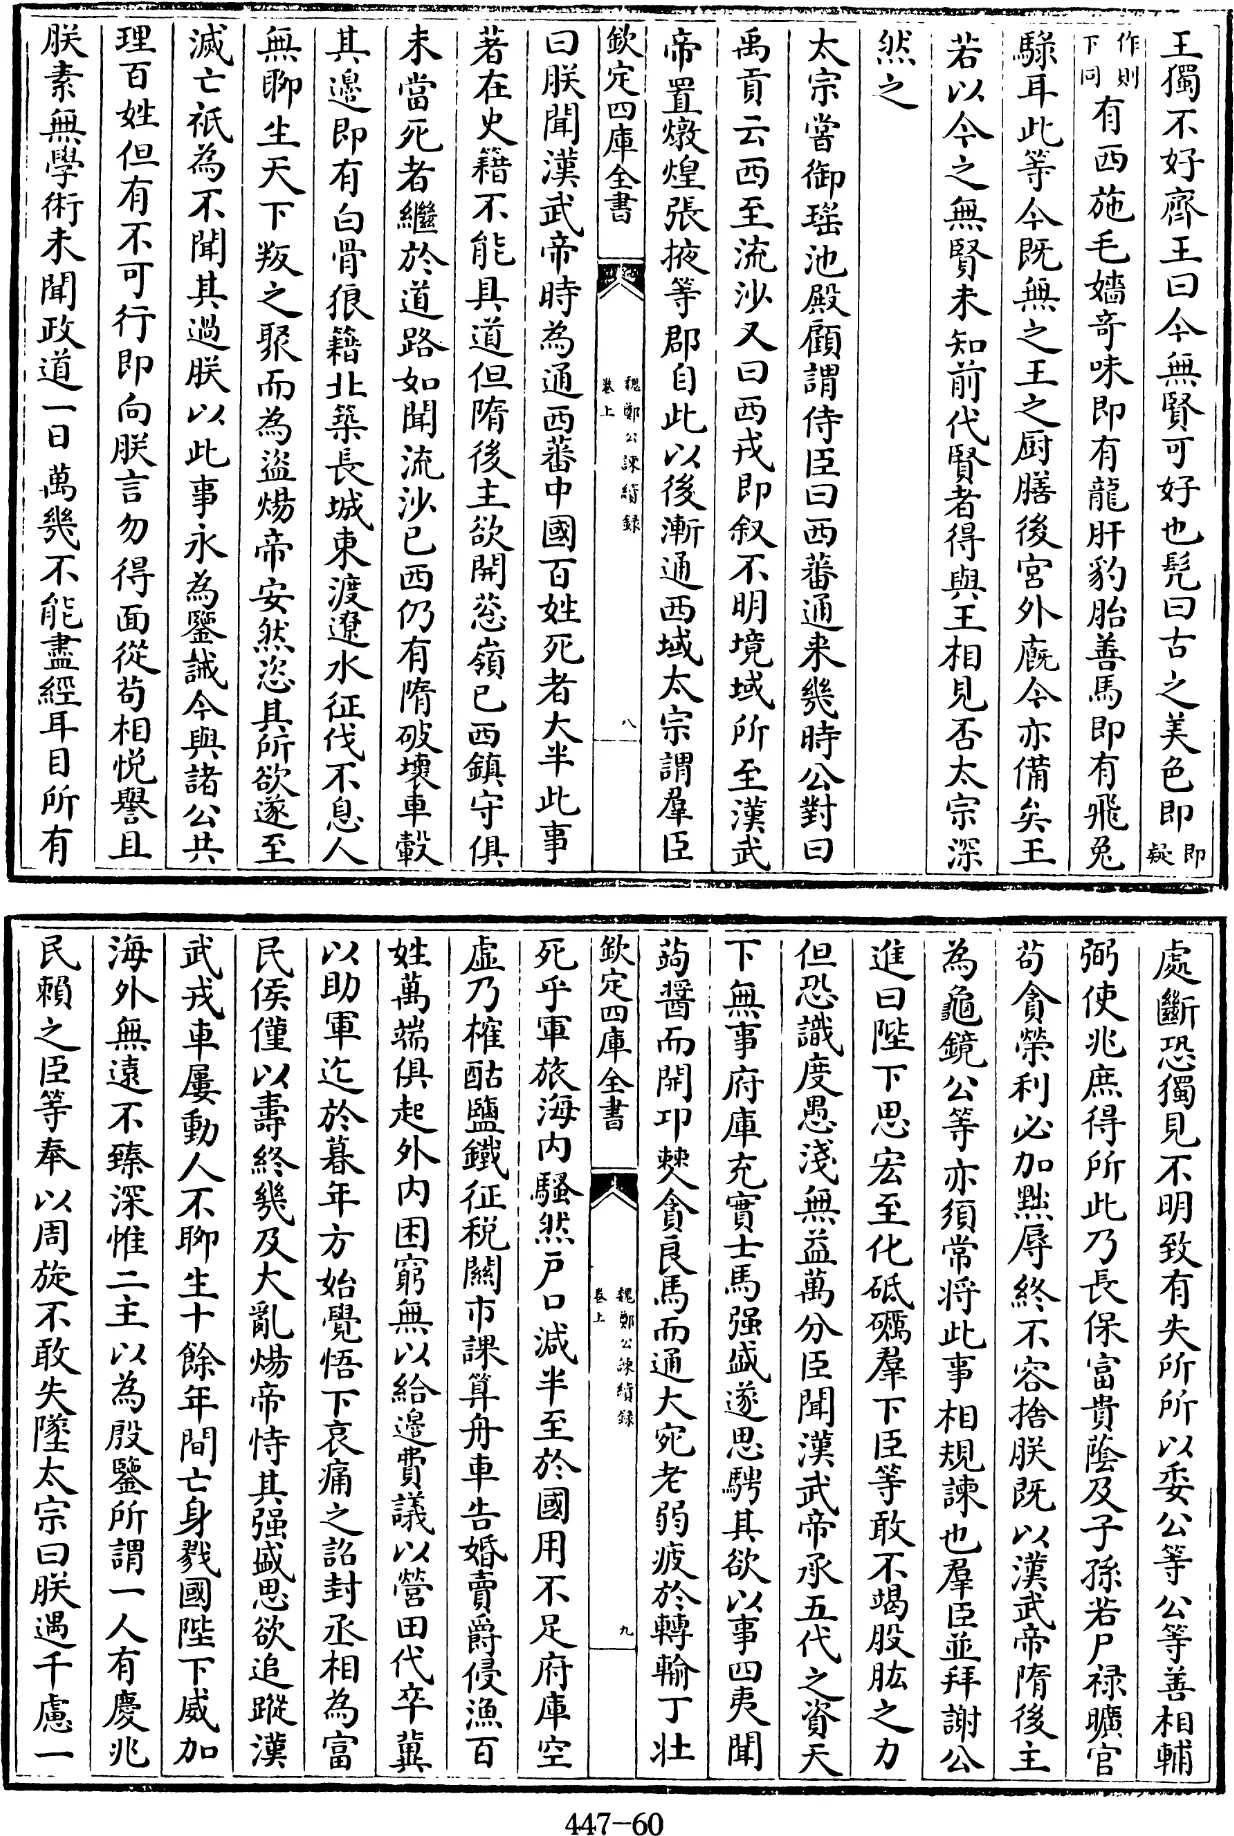 王獨不好齊王曰今無賢可好也髠曰古之美色即即疑
作則下同有西施毛嬙奇味即有龍肝豹胎善馬即有飛兔
騄耳此等今既無之王之厨膳後宮外廐今亦備矣王
若以今之無賢未知前代賢者得與王相見否太宗深
然之
太宗嘗御瑤池殿顧謂侍臣曰西蕃通来幾時公對曰
禹貢云西至流沙又曰西戎即叙不明境域所至漢武
帝置燉煌張掖等郡自此以後漸通西域太宗謂羣臣
欽定四庫全書
魏鄭公諫續錄
卷上
八
曰朕聞漢武帝時為通西蕃中國百姓死者大半此事
著在史籍不能具道但隋後主欲開葱嶺已西鎮守俱
未當死者繼於道路如聞流沙已西仍有隋破壞車轂
其邊即有白骨狼籍北築長城東渡遼水征伐不息人
無聊生天下叛之聚而為盗煬帝安然恣其所欲遂至
滅亡祇為不聞其過朕以此事永為鑒誡今與諸公共
理百姓但有不可行即向朕言勿得面從苟相悦譽且
朕素無學術未聞政道一日萬幾不能盡經耳目所有
處斷恐獨見不明致有失所所以委公等公等善相輔
弼使兆庶得所此乃長保富貴蔭及子孫若尸禄曠官
苟貪榮利必加黜辱終不容捨朕既以漢武帝隋後主
為龜鏡公等亦須常將此事相規諫也羣臣並拜謝公
進曰陛下思宏至化砥礪羣下臣等敢不竭股肱之力
但恐識度愚淺無益萬分臣聞漢武帝承五代之資天
下無事府庫充實士馬强盛遂思騁其欲以事四夷聞
蒟醬而開卭僰貪良馬而通大宛老弱疲於轉輸丁壯
欽定四庫全書
魏鄭公諫續錄
卷上
九
死乎軍旅海内騷然戸口減半至於國用不足府庫空
虛乃榷酤鹽鐵征税關市課算舟車告婚賣爵侵漁百
姓萬端俱起外内困窮無以給邊費議以營田代卒冀
以助軍迄於暮年方始覺悟下哀痛之詔封丞相為富
民侯僅以壽終幾及大亂煬帝恃其强盛思欲追蹤漢
武戎車屢動人不聊生十餘年間亡身戮國陛下威加
海外無遠不臻深惟二主以為殷鑒所謂一人有慶兆
民賴之臣等奉以周旋不敢失墜太宗曰朕遇千慮一
447-60